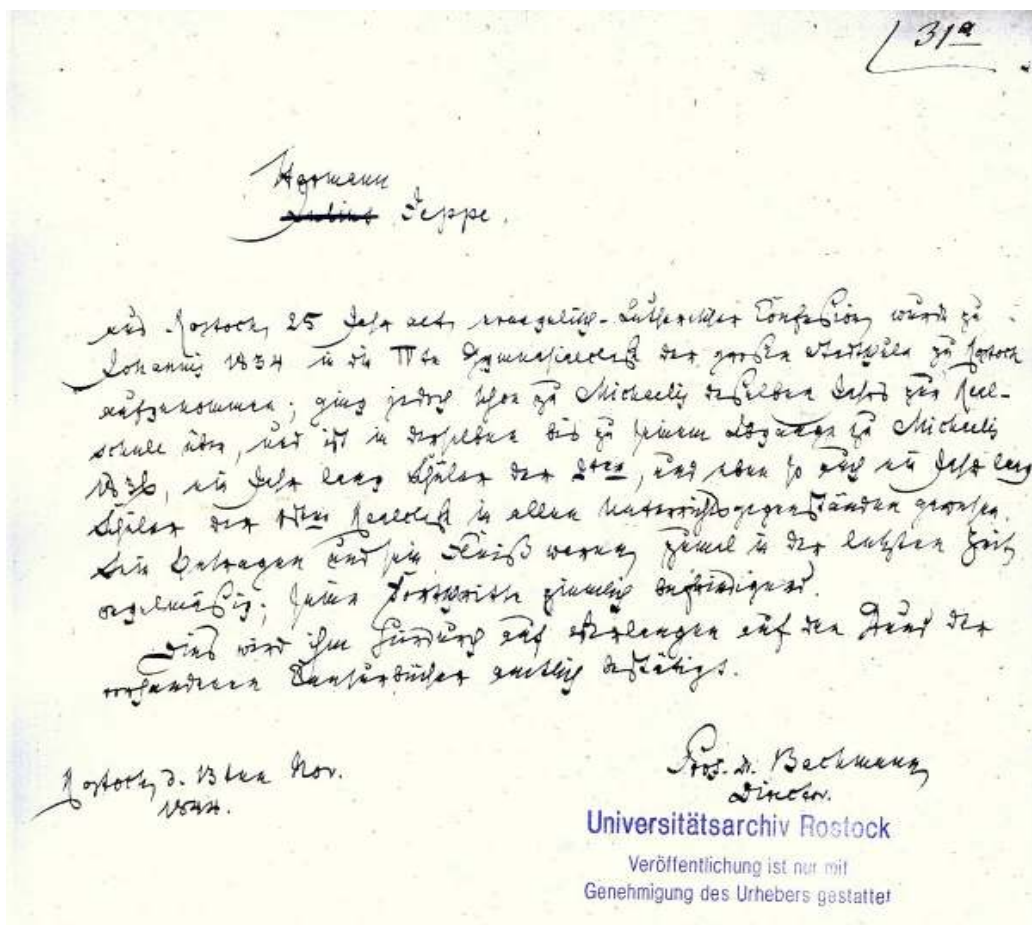 31a
Hermann
Julius Seppe.
aus Rostock, 25 Jahr alt, evangelisch-Lutherischer Confession, wurde zu
Johannis 1834 in die IVte Gymnasialclasse der großen Stadtschule zu Rostock
aufgenommen; ging jedoch schon zu Michaelis desselben Jahrs zur Real-
schule über, und ist in derselben bis zu seinem Abgange zu Michaelis
1836, ein Jahr lang Schüler der 2ten, und eben so auch ein Jahr lang
Schüler der 1sten Realclasse in allen Unterrichtsgegenständen gewesen.
Sein Betragen und sein Fleiß waren, zumal in der letzten Zeit,
regelmäßig; seine Fortschritte ziemlich befriedigend.
Dies wird ihm hierdurch auf Verlangen auf den Grund der
vorhandenen Censurbücher amtlich bestätigt.
Rostock, d. 13ten Nov.
1844.
Prof. Dr. Bachmann,
Director.
Universitätsarchiv Rostock
Veröffentlichung ist nur mit
Genehmigung des Urhebers gestattet